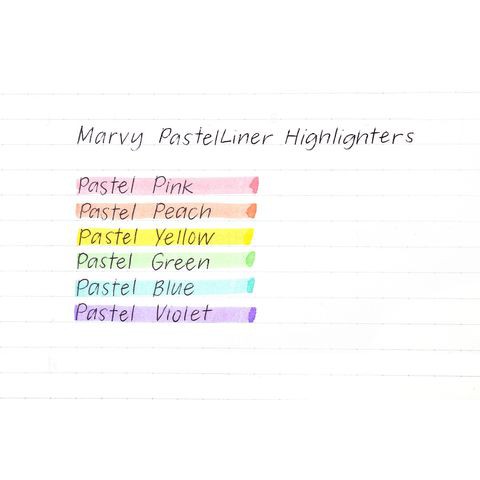 Marvy PastelLiner Highlighters
Pastel Pink
Pastel Peach
Pastel Yellow
Pastel Green
Pastel Blue
Pastel Violet